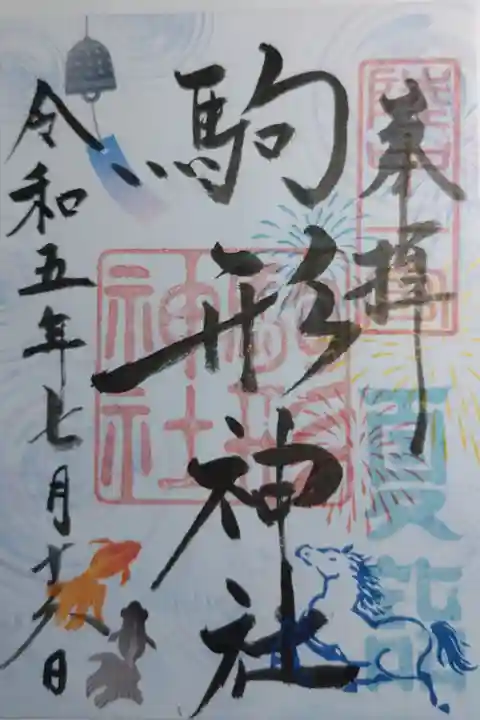 奉拝
駒形神社
令和五年七月十六日
駒形
神社
夏詣